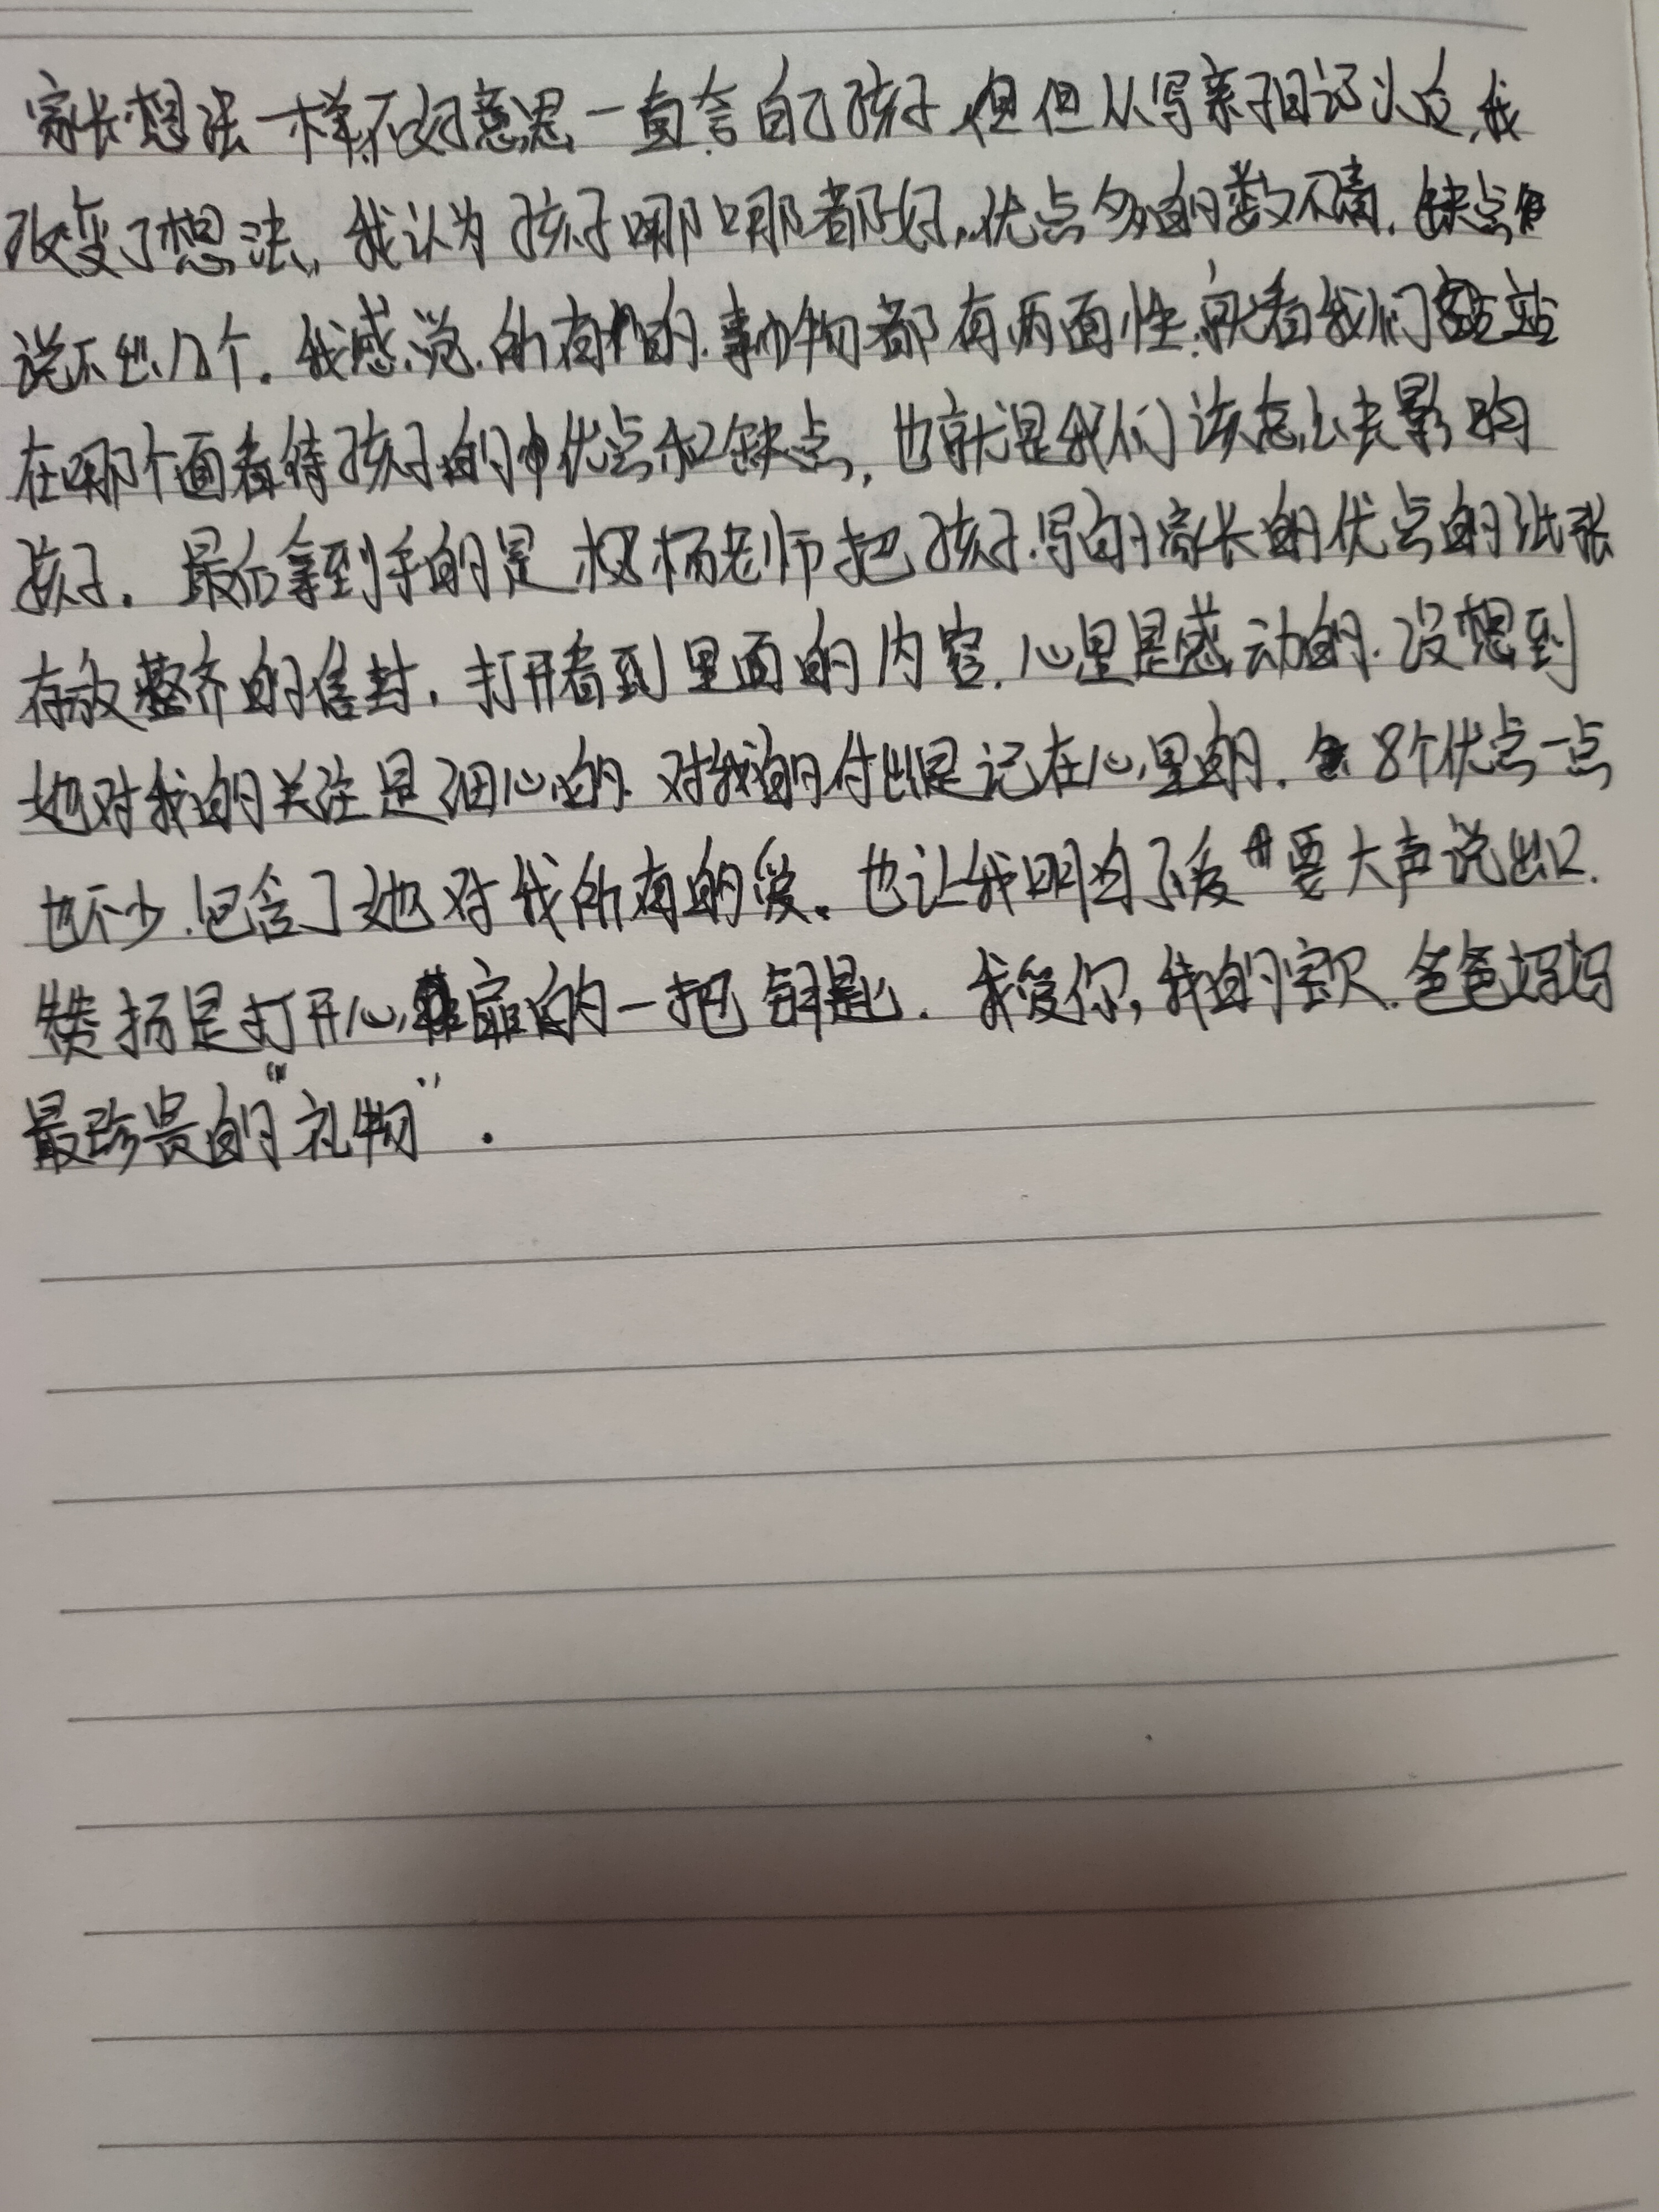 家长想法一样,不好意思一直夸自己孩子,但从写亲子日记以后,我
改变了想法,我认为孩子哪哪都好,优点多的数不清,缺点
说不出几个。我感觉所有的事物都有两面性,就看我们站
在哪个面看待孩子的优点和缺点,也就是我们该怎么去影响
孩子。最后拿到手的是杨老师把孩子写的家长的优点的纸张
存放整齐的信封,打开看到里面的内容,心里是感动的,没想到
她对我的关注是细心的,对我的付出是记在心里的,8个优点一点
也不少,包含了她对我所有的爱。也让我明白了爱要大声说出口.
赞扬是打开心扉的一把钥匙.我爱你,我的宝贝.爸爸妈妈
最珍贵的“礼物”.